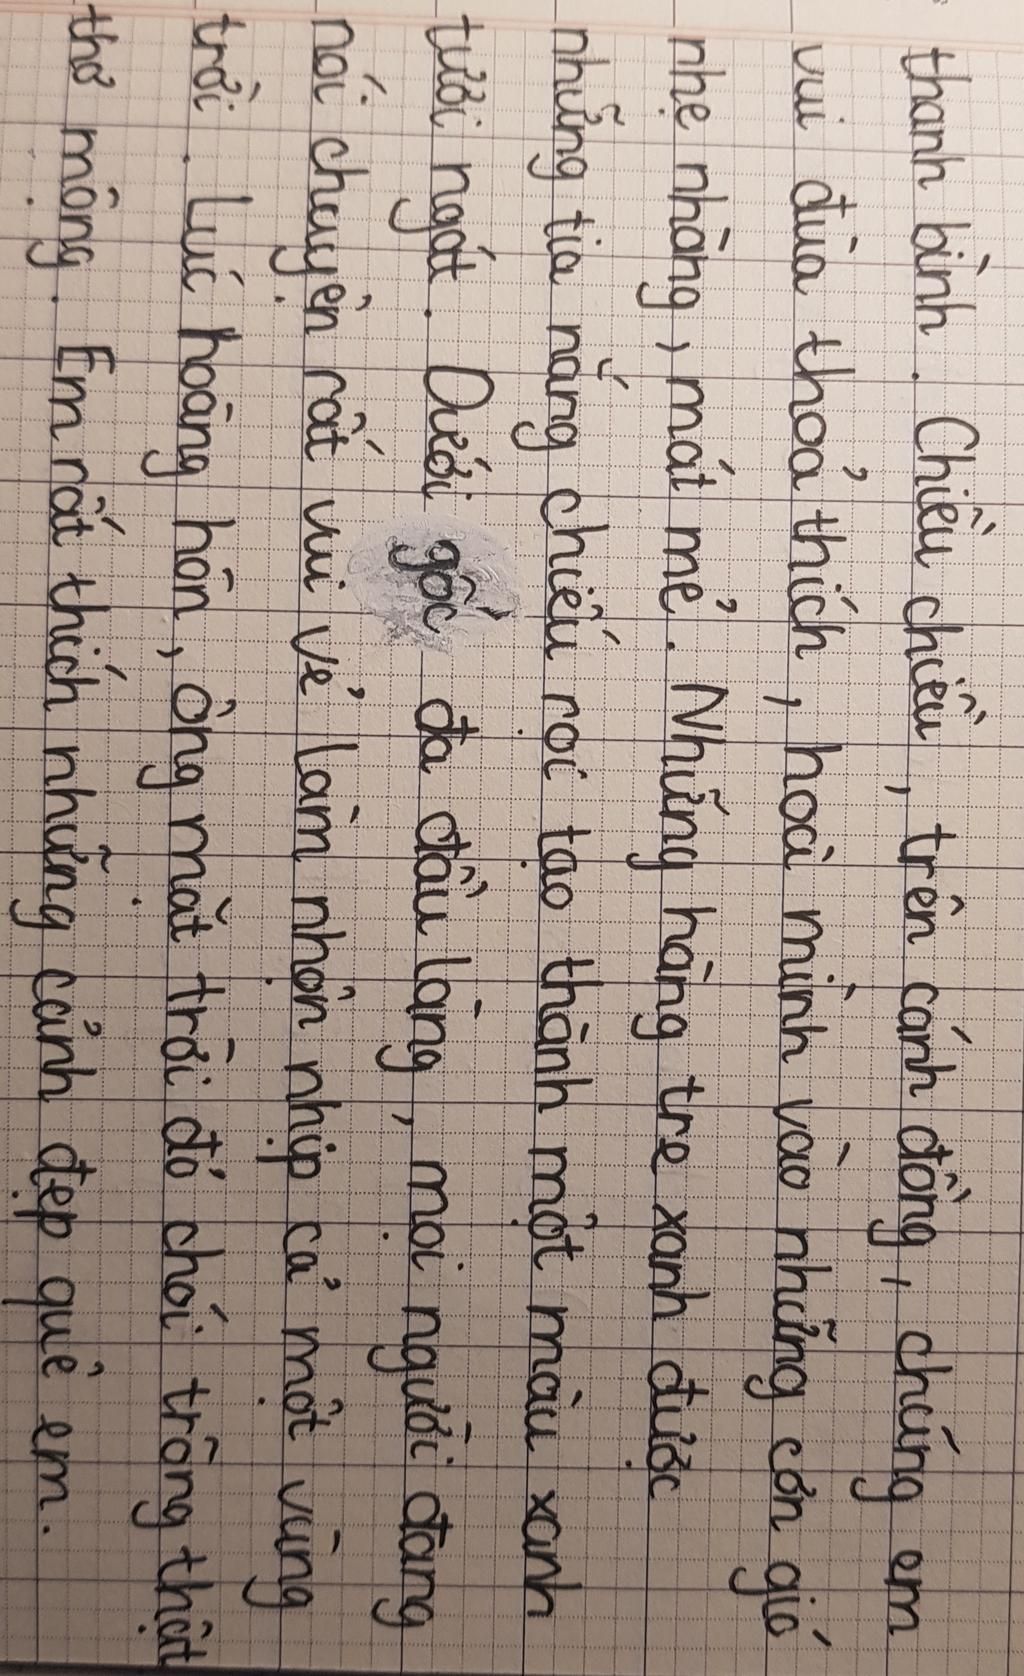 thanh bình. Chiều chiều, trên cánh đồng, chúng em
vui đùa thoả thích, hoà mình vào những cơn gió
nhẹ nhàng, mát mẻ. Những hàng tre xanh được
những tia nắng chiếu rọi tạo thành một màu xanh
tươi ngát. Dưới gốc đa đầu làng, mọi người đang
nói chuyện rất vui vẻ làm nhộn nhịp cả một vùng
trời. Lúc hoàng hôn, ông mặt trời đỏ chói trông thật
thơ mộng. Em rất thích những cảnh đẹp quê em.